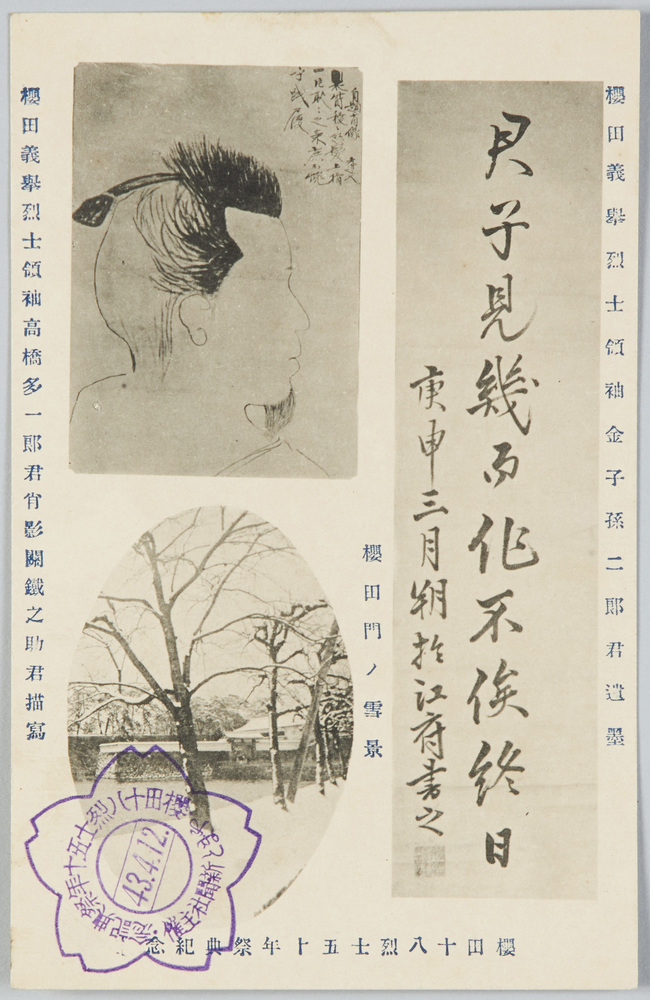 櫻田義擧烈士領袖金子孫二郎君遺墨
君子見幾而作不俟終日
庚申三月朔於江府書之
櫻田門ノ雪景
櫻田義擧烈士領袖高橋多一郎君肖影關鐵之助君描寫
櫻田十八烈士五十年祭典紀念
櫻田十八烈士五十年祭典記念
新聞社主催
43.4.12.